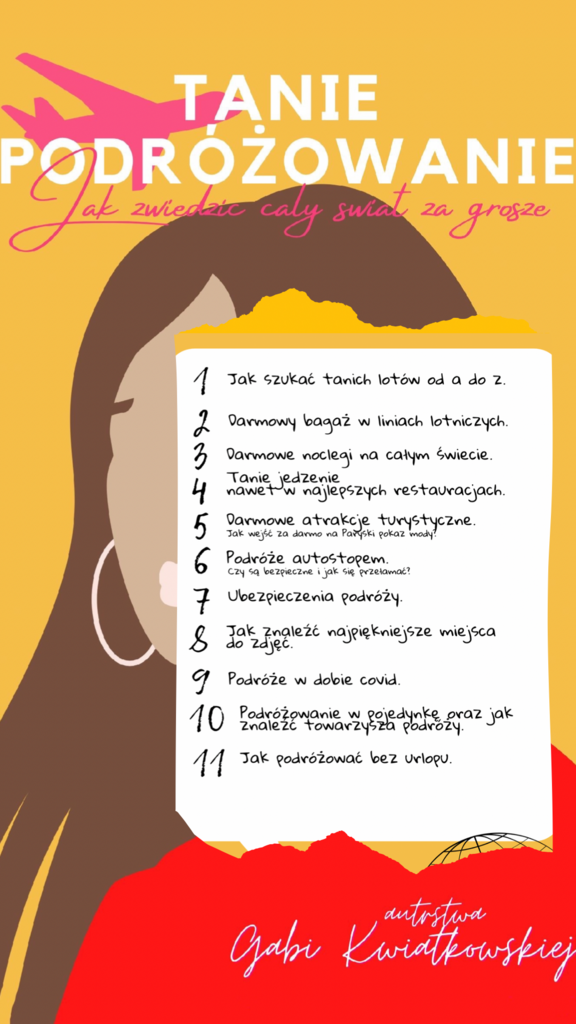 TANIE
PODRÓŻOWANIE
Jak zwiedzic caly swiat za grosze
1 Jak szukać tanich lotów od a do z.
2 Darmowy bagaż w liniach lotniczych.
3 Darmowe noclegi na całym świecie.
4 Tanie jedzenie
nawet w najlepszych restauracjach.
5 Darmowe atrakcje turystyczne.
Jak wejść za darmo na Paryski pokaz mody?
6 Podróże autostopem.
Czy są bezpieczne i jak się przełamać?
7 Ubezpieczenia podróży.
8 Jak znaleźć najpiękniejsze miejsca
do zdjęć.
9 Podróże w dobie covid.
10 Podróżowanie w pojedynkę oraz jak
znaleźć towarzysza podróży.
11 Jak podróżować bez urlopu.
autrstwa
Gabi Kwiatkowskiej